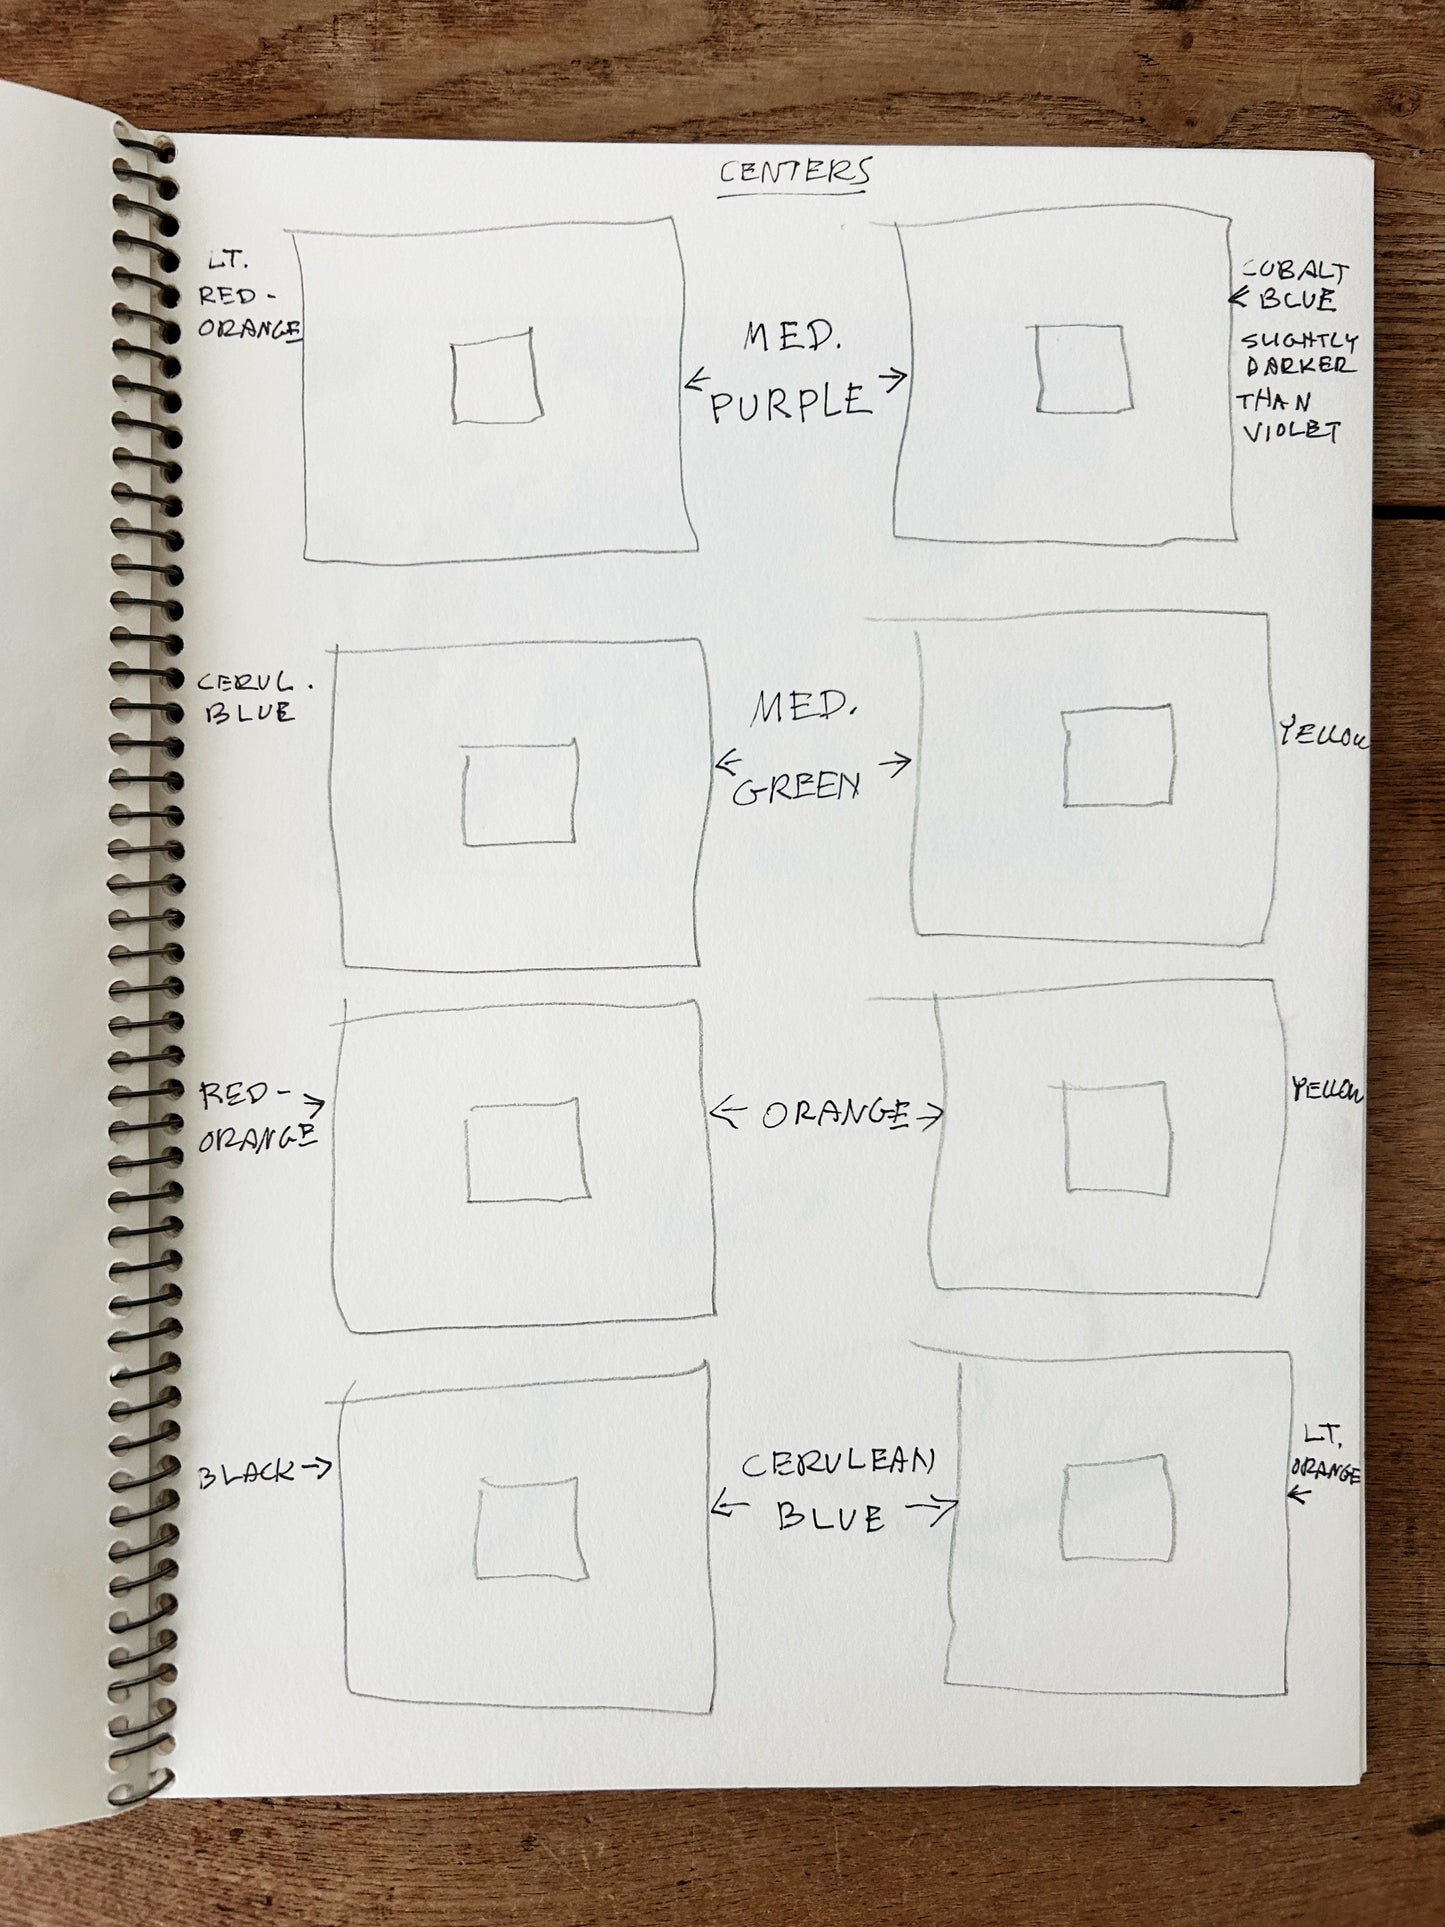 CENTERS
LT.
RED-
ORANGE
MED.
PURPLE
COBALT
BLUE
SLIGHTLY
DARKER
THAN
VIOLET
CERUL.
BLUE
MED.
GREEN
YELLOW
RED-
ORANGE
ORANGE
YELLOW
BLACK
CERULEAN
BLUE
LT.
ORANGE